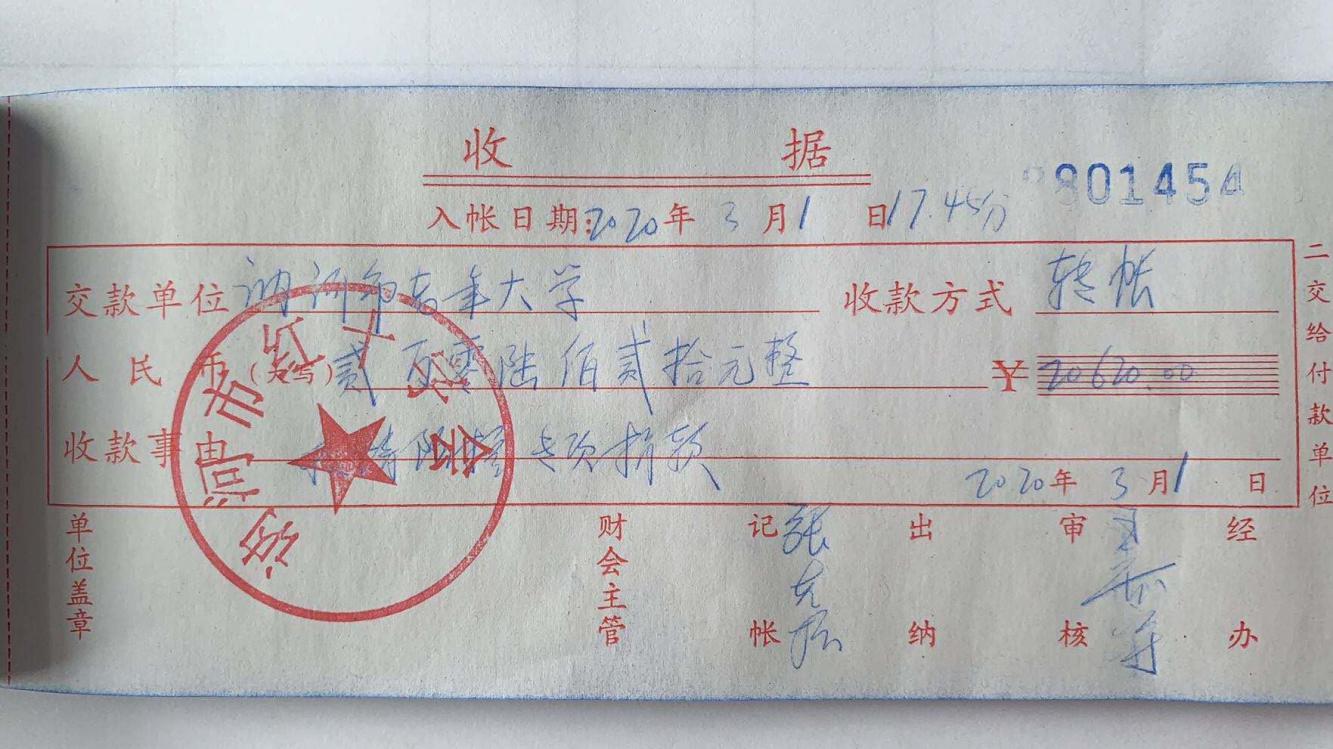 收 据
801454
入帐日期:2020年 3月1 日17.45分
交款单位 市老年大学 收款方式 转帐
人民币(大写)贰万零陆佰贰拾元整 ¥20620.00
收款事由 专项捐款
2020年 3月1 日
二交给付款单位
单位盖章 财会主管 记帐 张 出纳 审核 经办
市红十字会